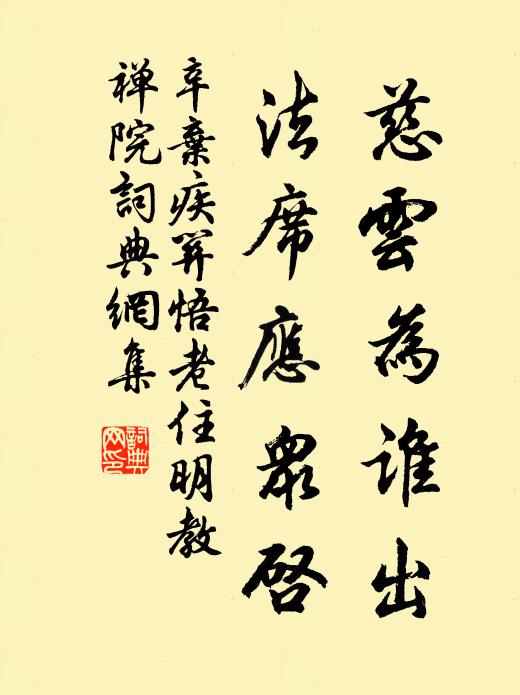 慈雲為誰出
法席應眾啓
辛棄疾第悟老住明教
禅院詞典網集
詞典网印